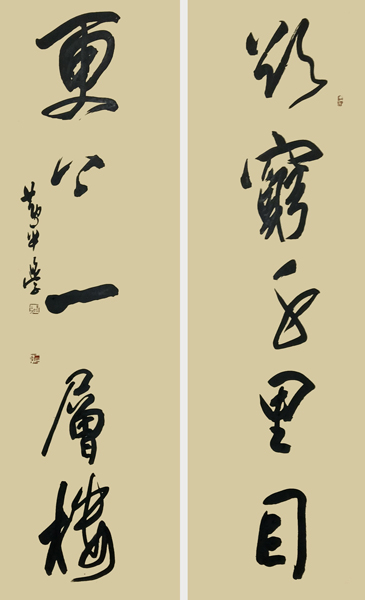 欲穷千里目
更上一層樓